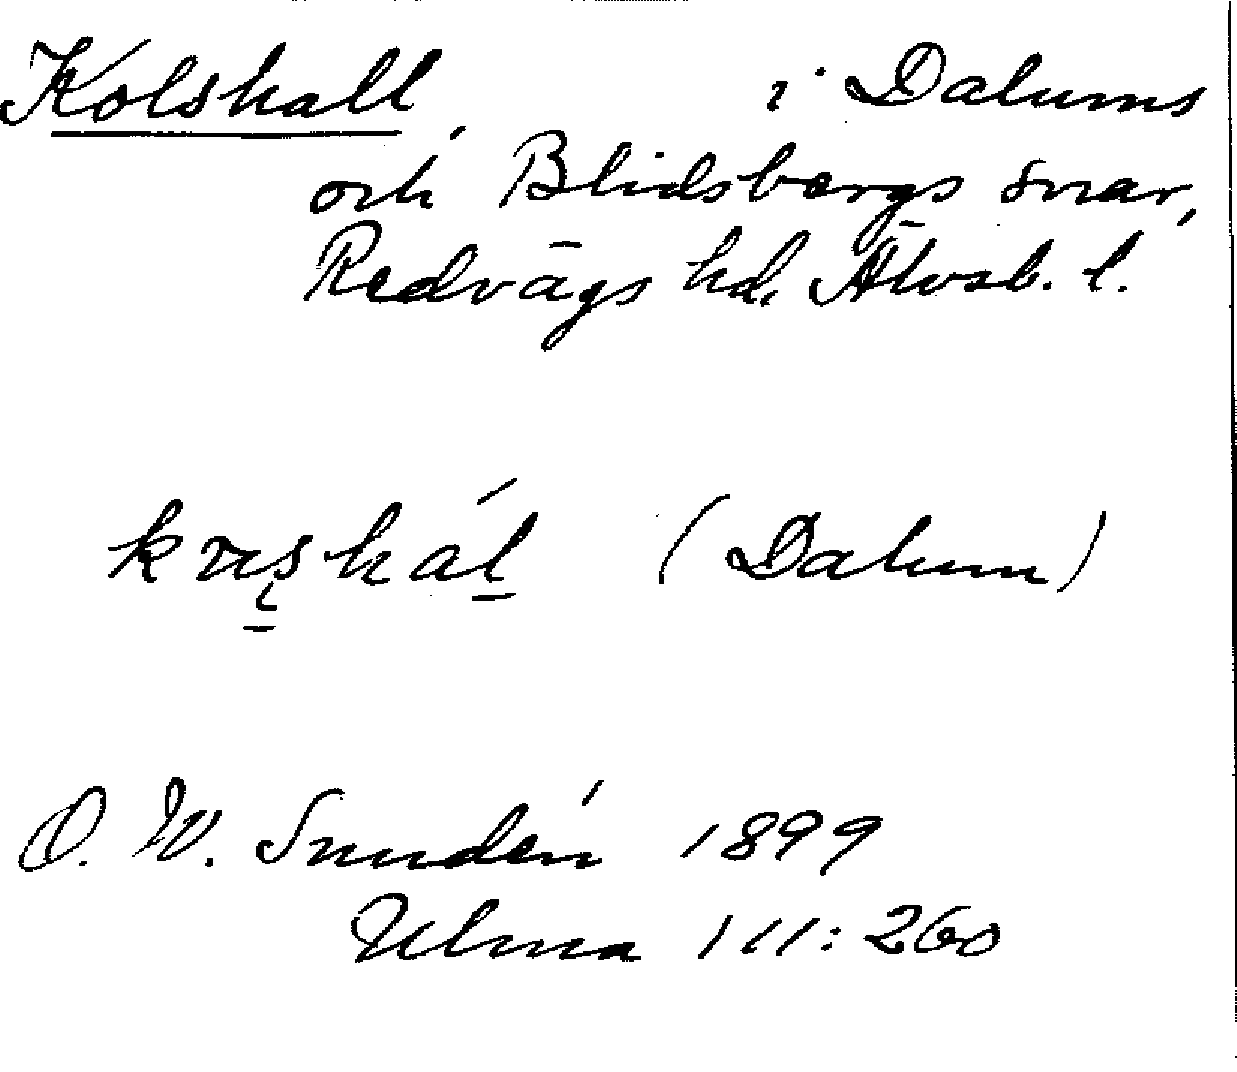 Kolshall, i Dalums
och Blidsbergs snar,
Redvägs hd, Älvsb. l.
(Dalum)
O. W. Sundén 1899
Ulma 111:260